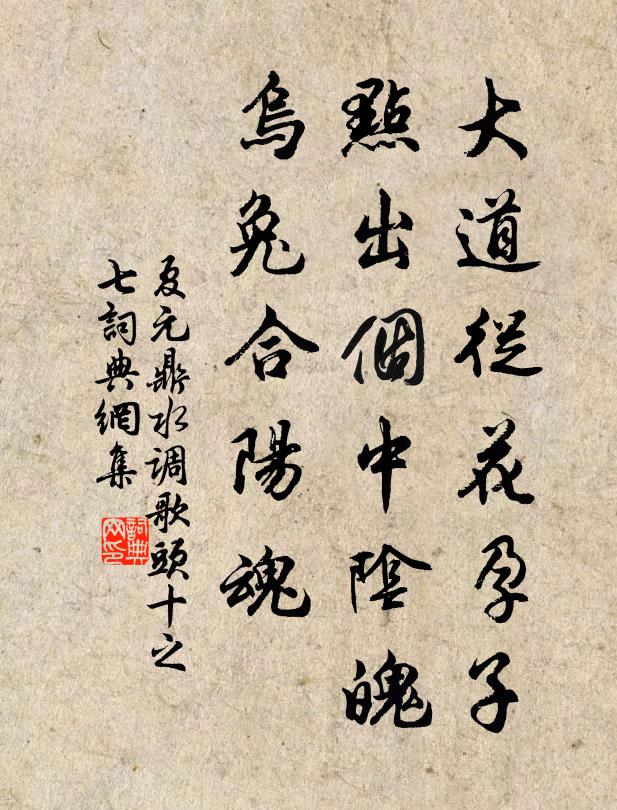 大道從花孕子
點出個中陰魄
烏兔合陽魂
夏元鼎水调歌頭十之
七詞典網集
詞典网印